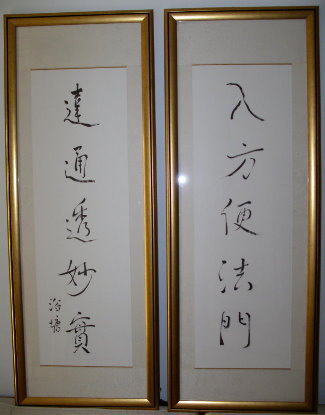 入方便法門
達通透妙實